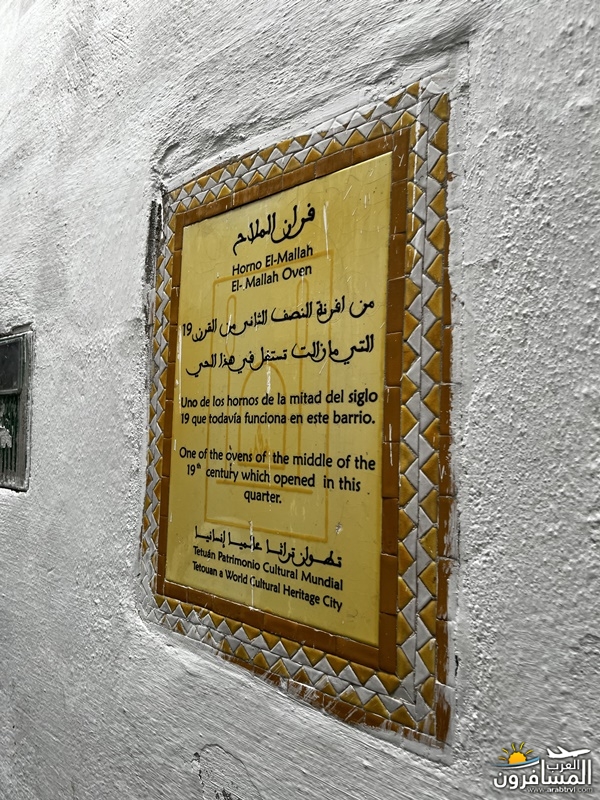 فران الملاح
Horno El-Mallah
El- Mallah Oven
من افرنة النصف الثاني من القرن 19
التي مازالت تستغل في هذا الحي
Uno de los hornos de la mitad del siglo
19 que todavía funciona en este barrio.
One of the ovens of the middle of the
19th century which opened in this
quarter.
تطوان تراثا عالميا إنسانيا
Tetuán Patrimonio Cultural Mundial
Tetouan a World Cultural Heritage City
العرب
المسافرون
www.arabtrvl.com